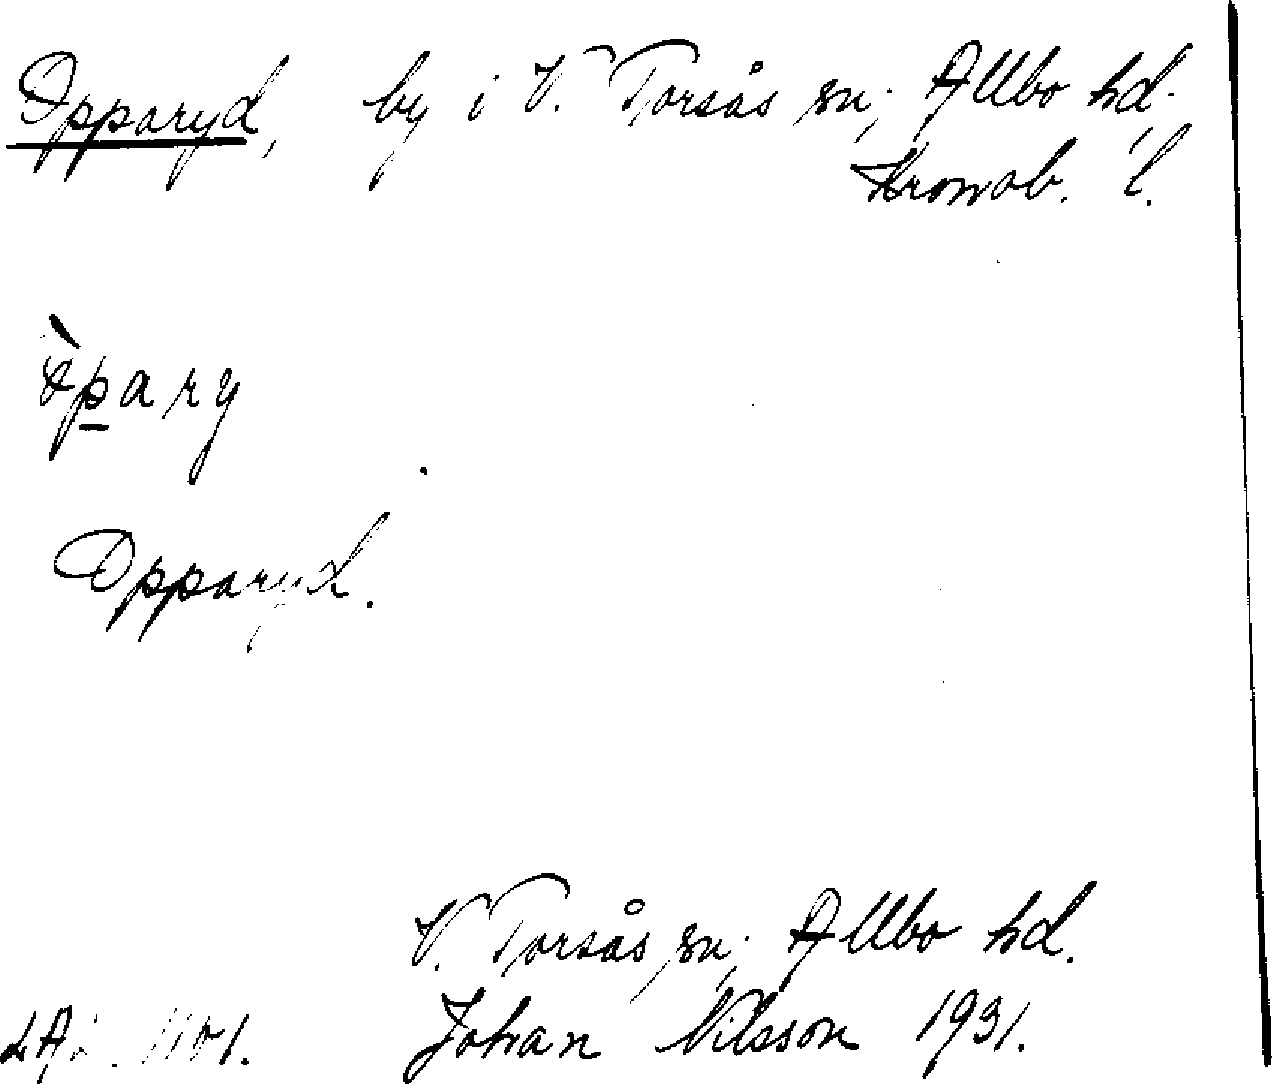 Opparyd, by i V. Torsås sn; Allbo hd.
Kronob. l.
Opparyd.
V. Torsås sn; Allbo hd.
Johan Nilsson 1931.